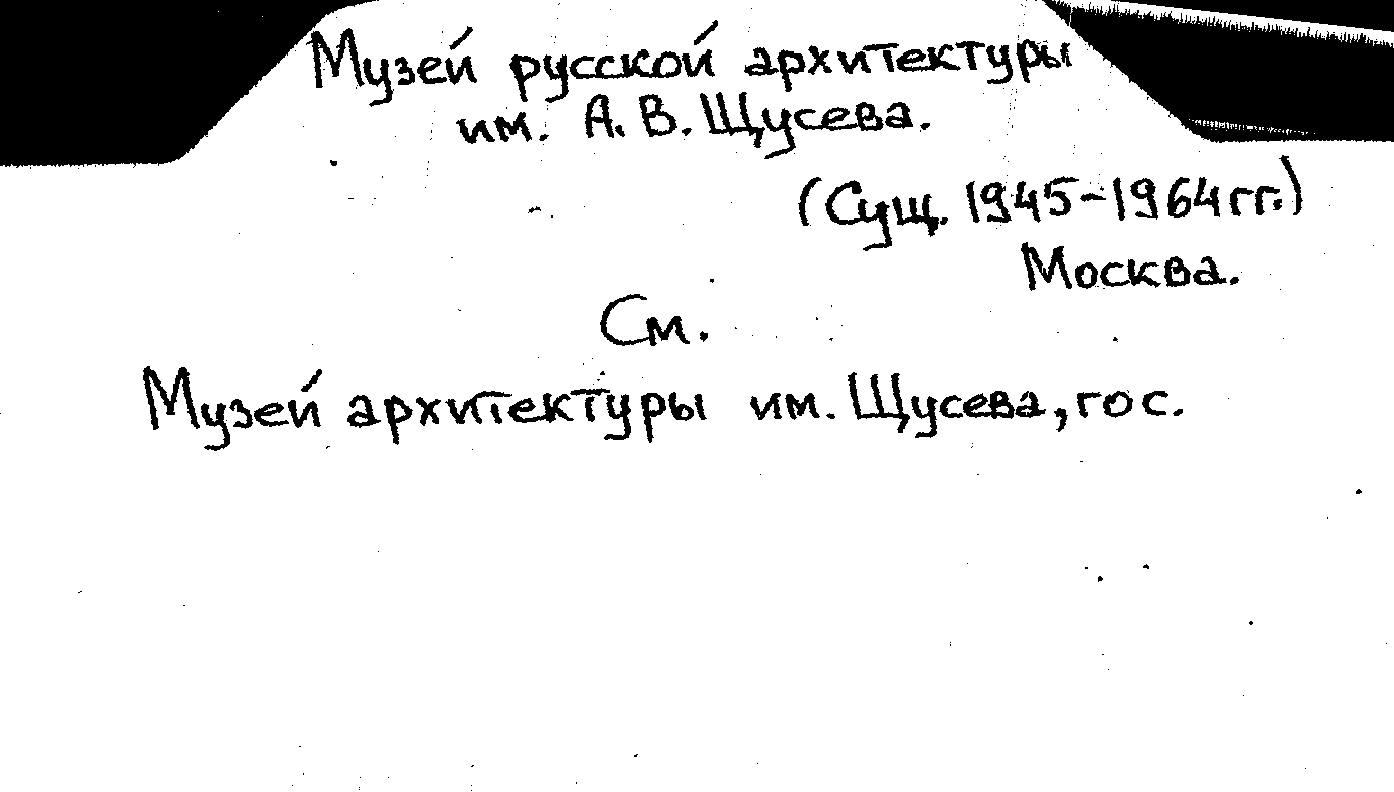 Музей русской архитектуры
им. А. В. Щусева.
(Сущ. 1945-1964гг.)
Москва.
См.
Музей архитектуры им. Щусева, гос.